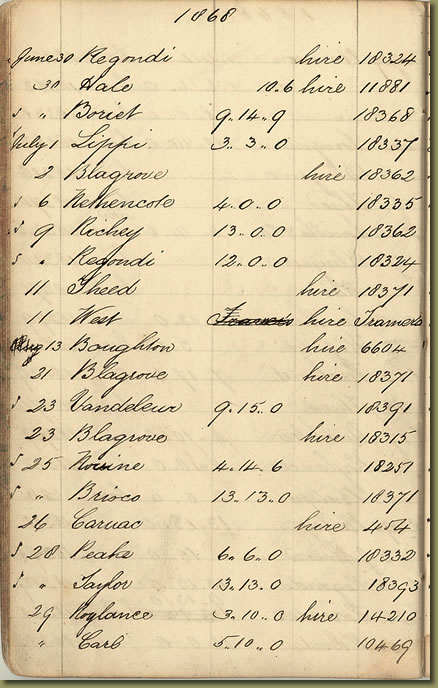 1868
June 30 Regondi hire 18324
30 Hale 10.6 hire 11881
s " Boriet 9..14..9 18368
July 1 Lippi 3..3..0 18337
2 Blagrove hire 18362
s 6 Nethencote 4..0..0 18335
s 9 Richey 13..0..0 18362
s " Regondi 12..0..0 18324
11 Sheed hire 18371
11 West hire Tramers
13 Boughton hire 6604
21 Blagrove hire 18371
s 23 Vandeleur 9..15..0 18391
23 Blagrove hire 18315
s 25 4..14..6 18251
s " Brisco 13..13..0 18371
26 Caruac hire 454
s 28 Peake 6..6..0 18332
s " Taylor 13..13..0 18393
29 Roylance 3..10..0 hire 14210
" Carb 5..10..0 10469